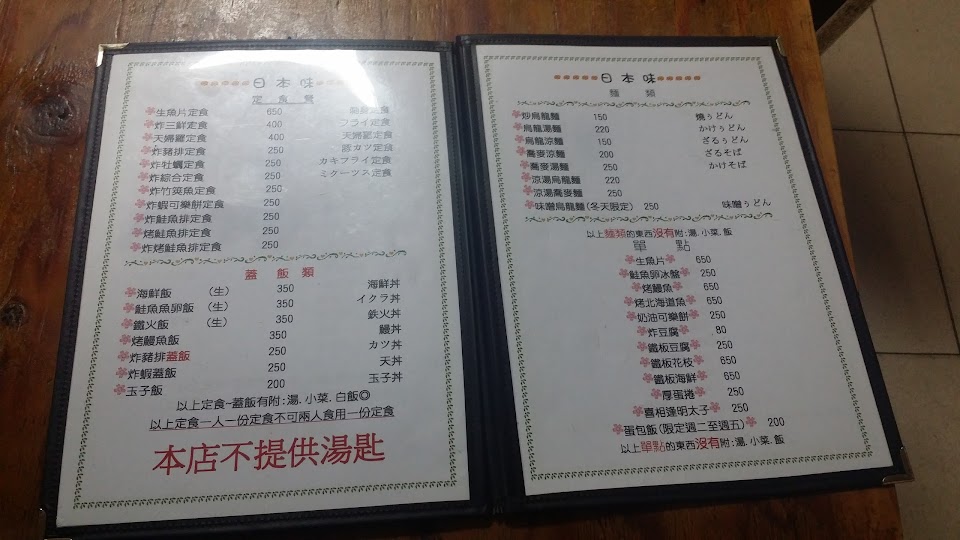 日本味
定食餐
生魚片定食 650
炸三鮮定食 400 フライ定食
天婦羅定食 400 天婦羅定食
炸豬排定食 250 豚カツ定食
炸牡蠣定食 250 カキフライ定食
炸綜合定食 250 ミクーツス定食
炸竹筴魚定食 250
炸蝦可樂餅定食 250
炸鮭魚排定食 250
烤鮭魚排定食 250
炸烤鮭魚排定食 250
蓋飯類
海鮮飯 (生) 350 海鮮丼
鮭魚魚卵飯 (生) 350 イクラ丼
鐵火飯 (生) 350 鉄火丼
烤鰻魚飯 350 鰻丼
炸豬排蓋飯 250 カツ丼
炸蝦蓋飯 250 天丼
玉子飯 200 玉子丼
以上定食-蓋飯有附:湯.小菜.白飯◎
以上定食一人一份定食不可兩人食用一份定食
本店不提供湯匙
日本味
麵類
炒烏龍麵 150 燒うどん
烏龍湯麵 220 かけうどん
烏龍涼麵 150 ざるうどん
蕎麥涼麵 200 ざるそば
蕎麥湯麵 250 かけそば
涼湯烏龍麵 220
涼湯蕎麥麵 250
味噌烏龍麵(冬天限定) 250 味噌うどん
以上麵類的東西沒有附:湯.小菜.飯
單點
生魚片 650
鮭魚卵冰盤 250
烤鰻魚 650
烤北海道魚 650
奶油可樂餅 250
炸豆腐 80
鐵板豆腐 250
鐵板花枝 650
鐵板海鮮 650
厚蛋捲 250
喜相逢明太子 250
蛋包飯(限定週二至週五) 200
以上單點的東西沒有附:湯.小菜.飯